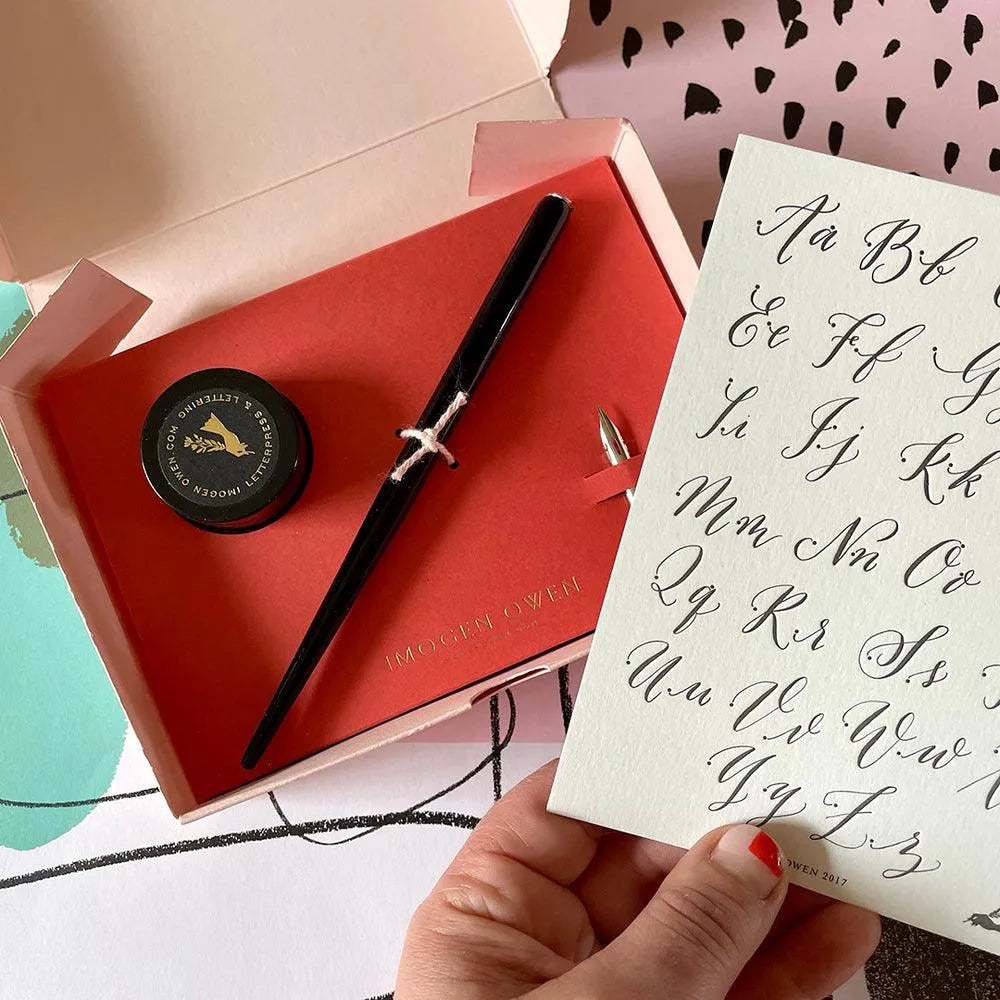 IMOGEN OWEN.COM LETTERPRESS & LETTERING
IMOGEN OWEN
Aa Bb
Ee Ff G
Ii Jj Kk
Mm Nn Oo
Qq Rr Ss
Uu Vv Ww
Yy Zz
OWEN 2017